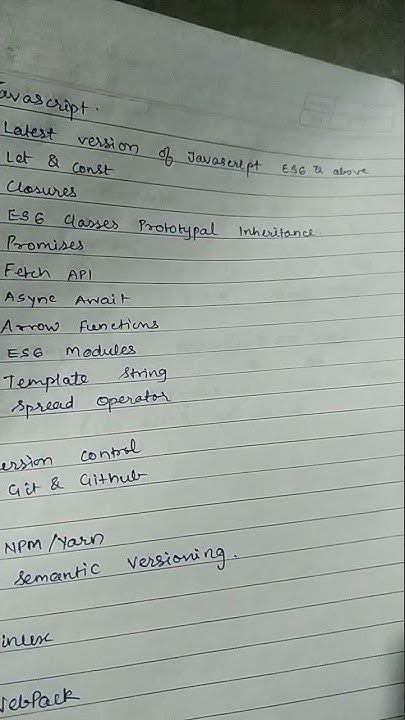 avascript.
Latest version of Javascript ES6 & above
Let & Const
Closures
ES6 Classes Prototypal Inheritance.
Promises
Fetch API
Async Await
Arrow Functions
ES6 Modules
Template String
Spread Operator
ersion control
Git & Github
NPM/Yarn
Semantic Versioning.
WebPack